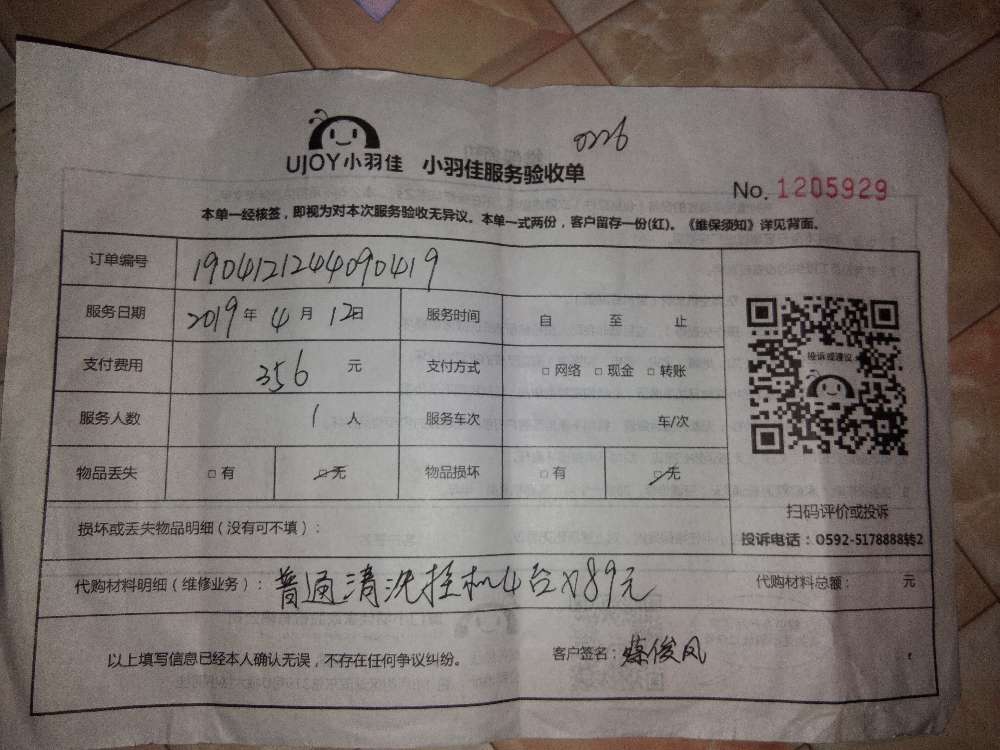 0226
UJOY小羽佳 小羽佳服务验收单
No. 1205929
本单一经核签，即视为对本次服务验收无异议。本单一式两份，客户留存一份(红)。《维保须知》详见背面。
订单编号 1904121244090419
服务日期 2019年4月12日 服务时间 自 至 止
支付费用 356 元 支付方式 □网络 □现金 □转账
投诉或建议
服务人数 1 人 服务车次 车/次
物品丢失 □有 □无 物品损坏 □有 □无
扫码评价或投诉
损坏或丢失物品明细（没有可不填）：
投诉电话：0592-5178888转2
代购材料明细（维修业务）：普通清洗挂机4台x89元 代购材料总额： 元
以上填写信息已经本人确认无误，不存在任何争议纠纷。 客户签名：俊凤